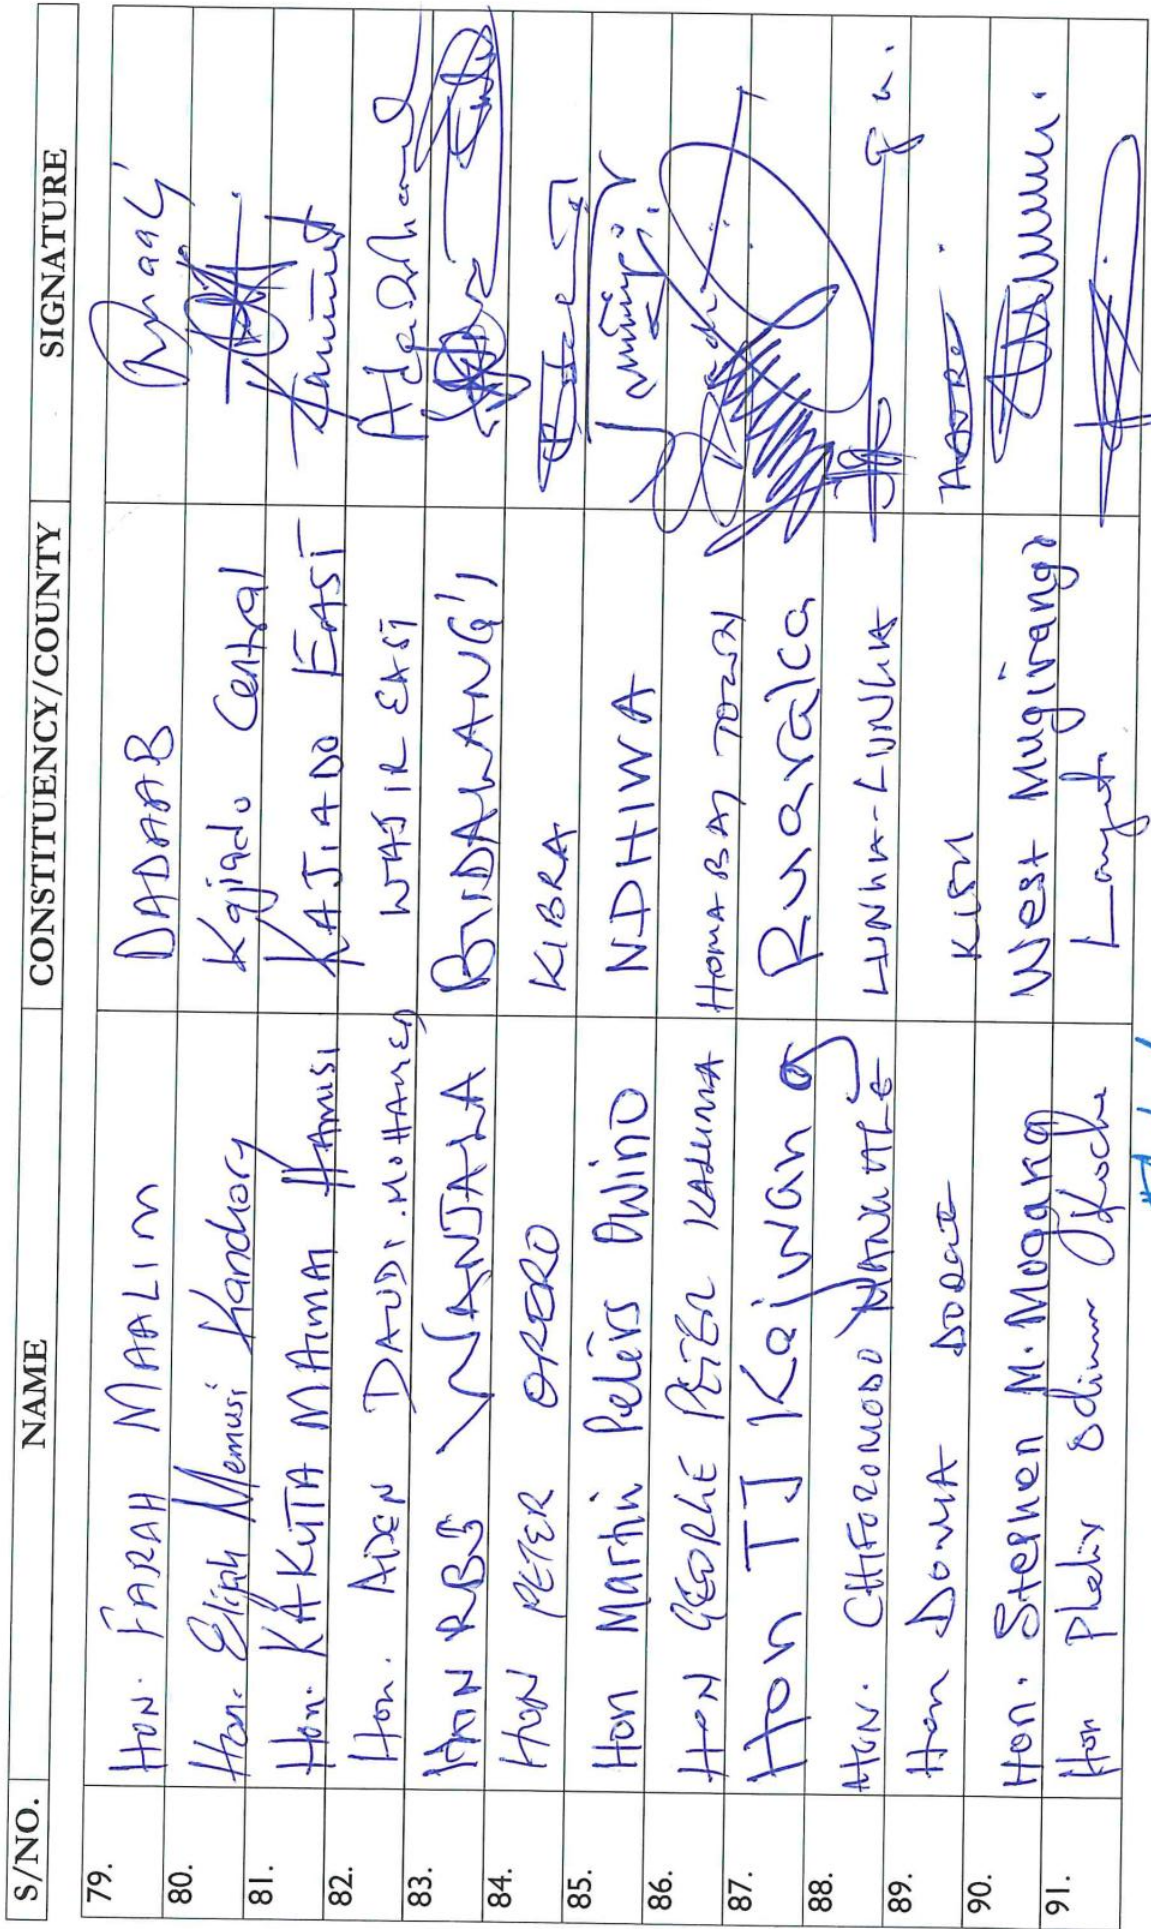 S/NO. NAME CONSTITUENCY/COUNTY SIGNATURE
79. HON. FARAH MAALIM DADAAB
80. Hon. Elijah Memusi Kanchory Kajiado Central
81. Hon. KAKUTA MAIMAI HAMISI KAJIADO EAST
82. Hon. ADEN DAUDI. MOHAMED WAJIR EAST
83. HON RBJ WANJALA BUDALANG'I
84. HON PETER ORERO KIBRA
85. Hon Martin Peters Owino NDHIWA
86. HON GEORGE PETER KALUMA HOMA BAY TOWN
87. Hon TJ Kajwang Ruaraka
88. HON. CHIFOROMODO MANGALE LUNGA-LUNGA
89. Hon DONYA DORICE KISII
90. Hon. Stephen M. Mogaka West Mugirango
91. Hon Phelix Odiwuor Langata